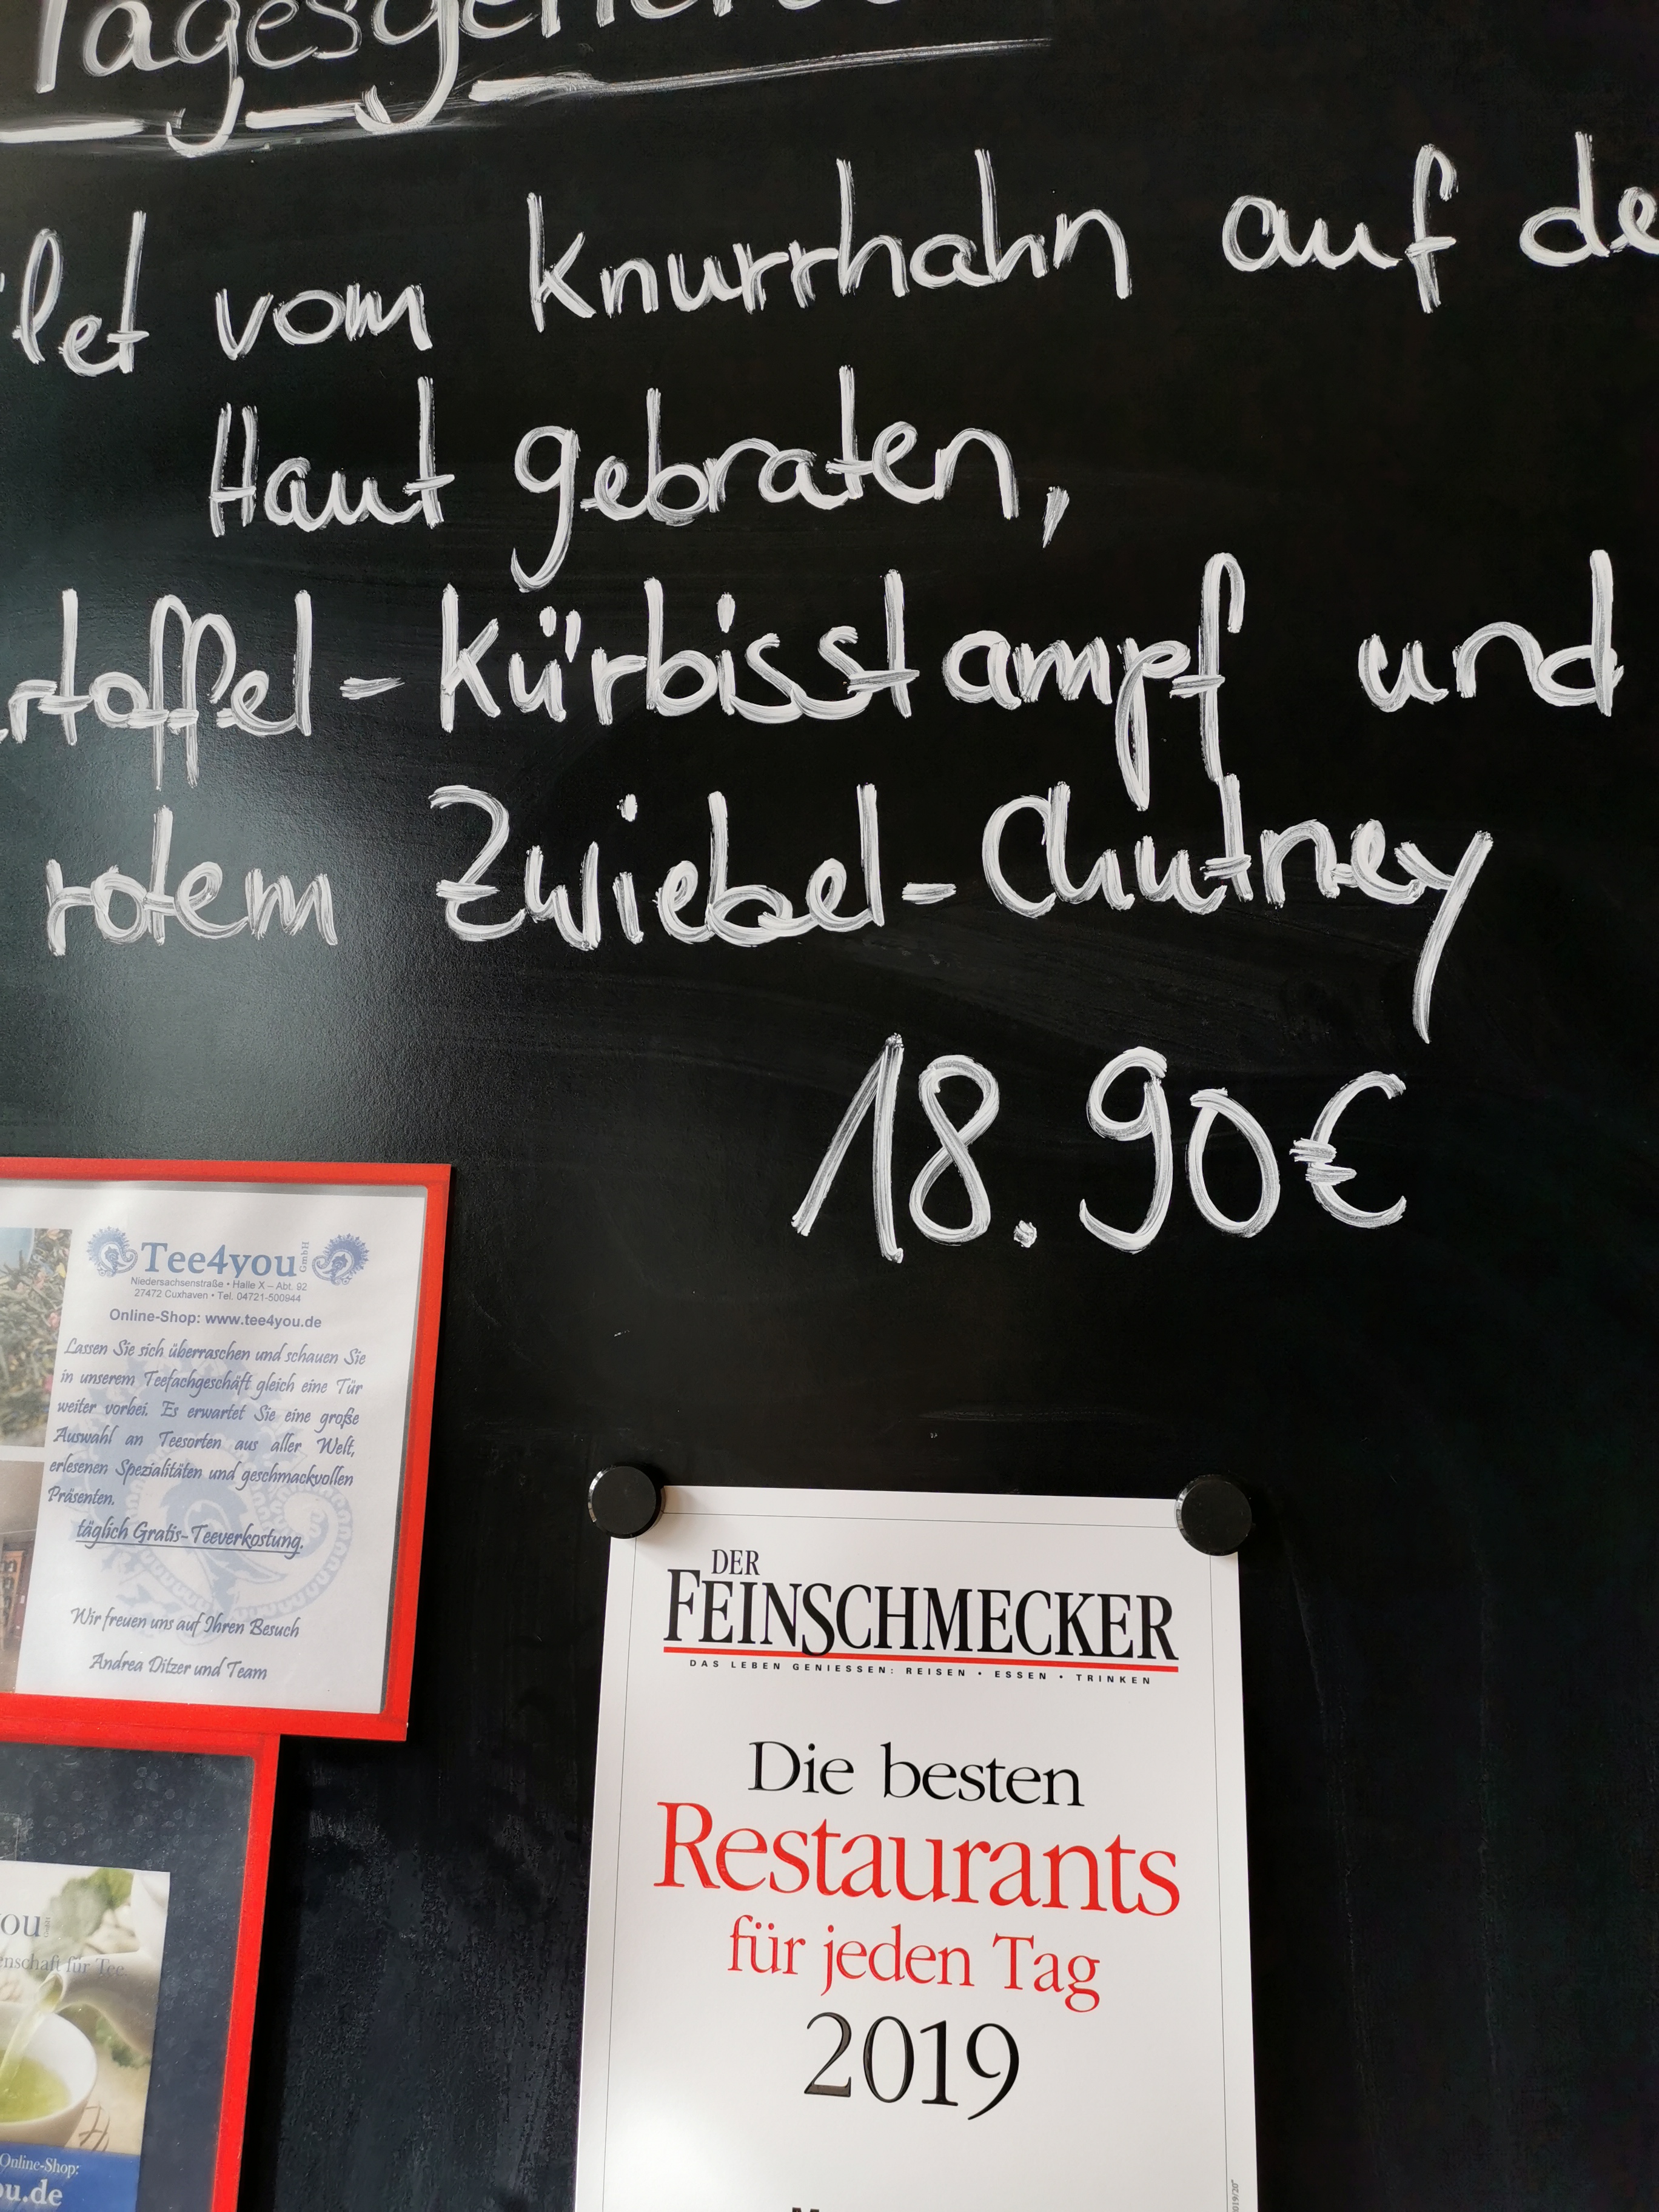 Tagesgericht
let vom Knurrhahn auf de
Haut gebraten,
rtoffel-Kürbisstampf und
rotem Zwiebel-Chutney
18.90€
Tee4you GmbH
Niedersachsenstraße • Halle X – Abt. 92
27472 Cuxhaven • Tel. 04721-500944
Online-Shop: www.tee4you.de
Lassen Sie sich überraschen und schauen Sie
in unserem Teefachgeschäft gleich eine Tür
weiter vorbei. Es erwartet Sie eine große
Auswahl an Teesorten aus aller Welt,
erlesenen Spezialitäten und geschmackvollen
Präsenten.
täglich Gratis-Teeverkostung.
Wir freuen uns auf Ihren Besuch
Andrea Ditzer und Team
you
enschaft für Tee
Online-Shop:
ou.de
DER
FEINSCHMECKER
DAS LEBEN GENIESSEN: REISEN • ESSEN • TRINKEN
Die besten
Restaurants
für jeden Tag
2019